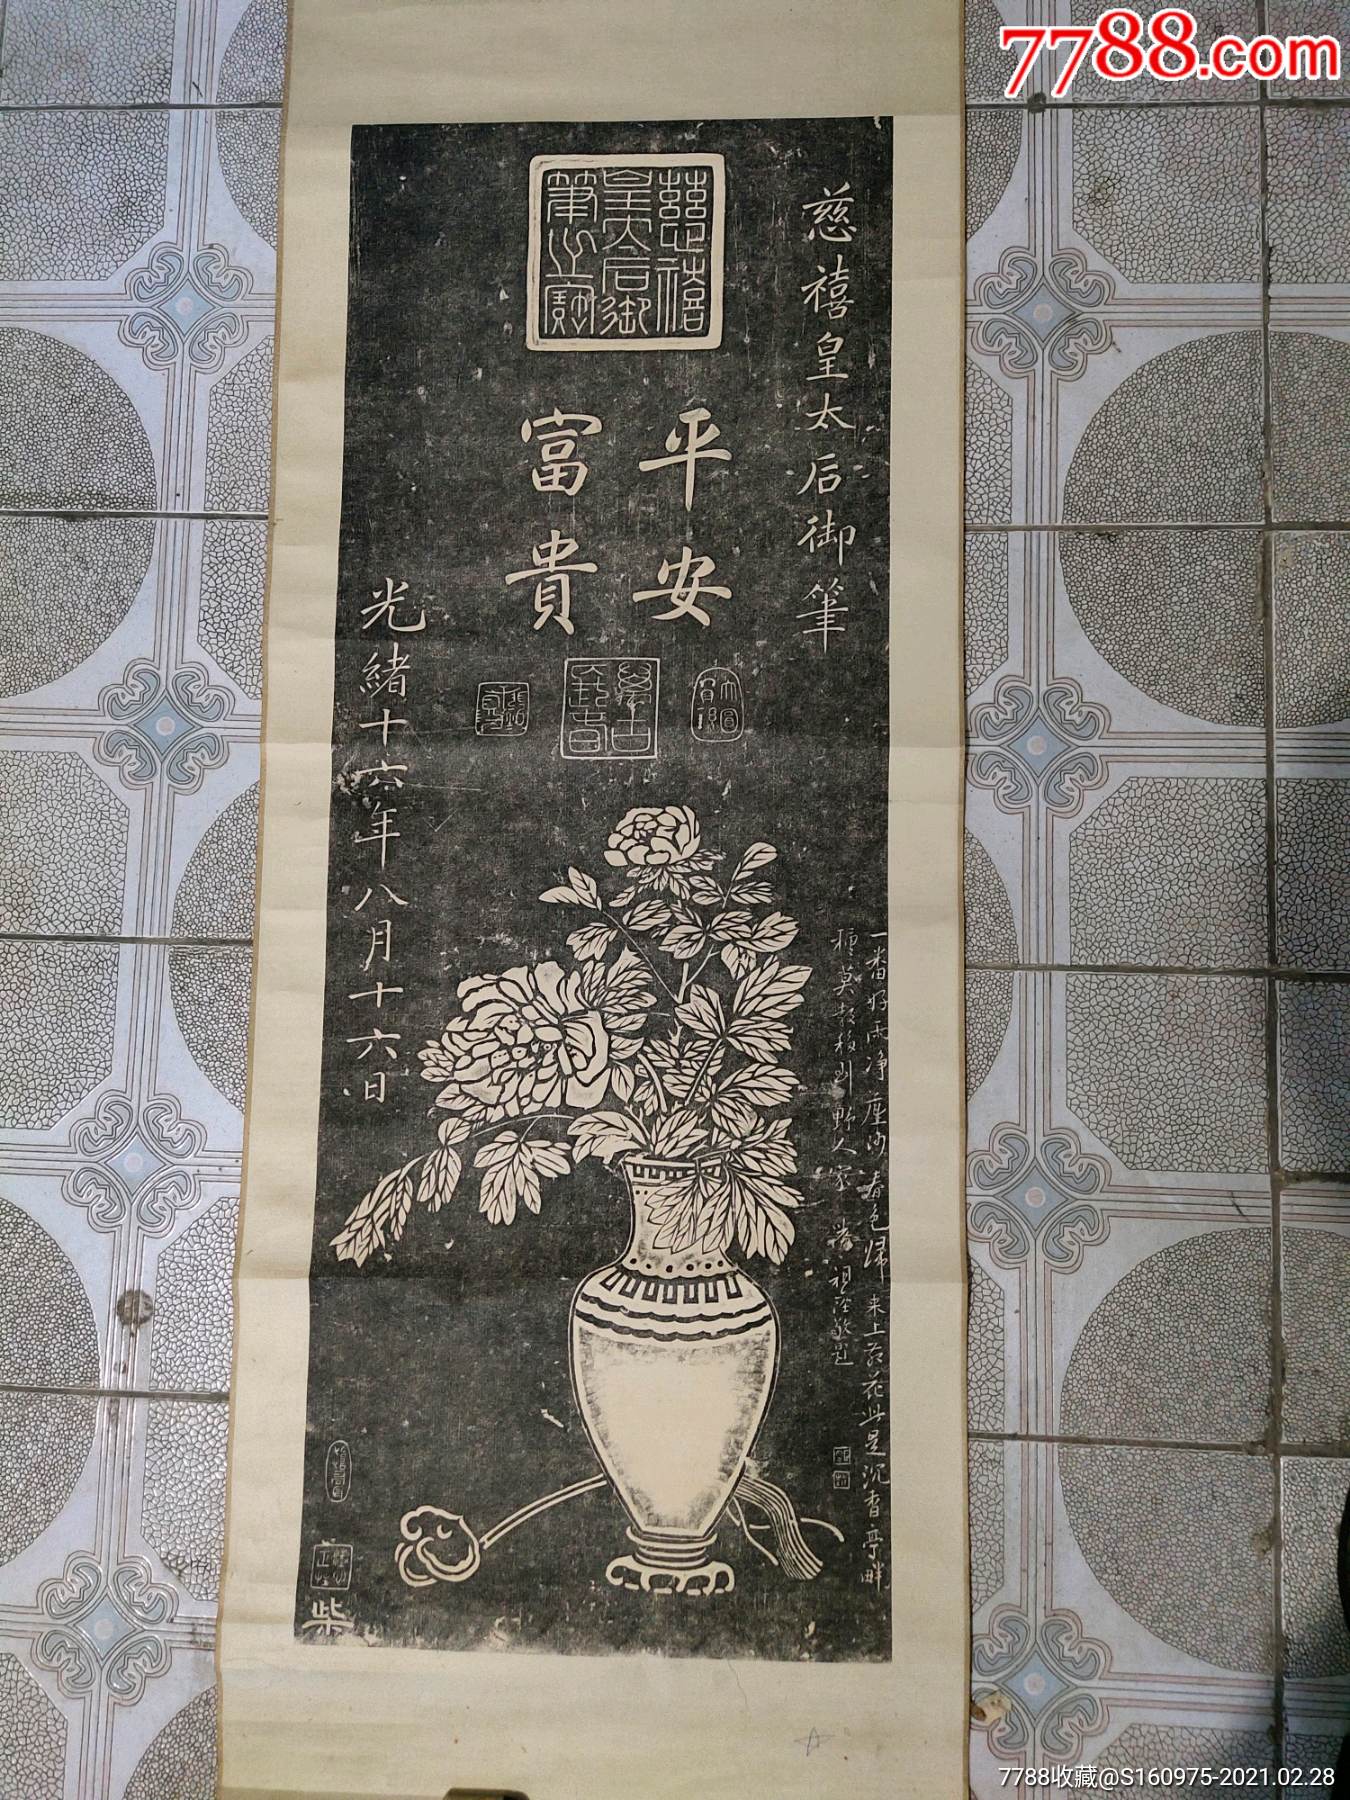 7788.com
慈禧皇太后御筆
慈禧
皇太后御
筆之寶
平安
富貴
光緒十六年八月十六日
一番好雨净塵沙春色歸來上苑花此是沉香亭畔
種莫教移到野人家
敬題
柴
7788收藏@S160975-2021.02.28